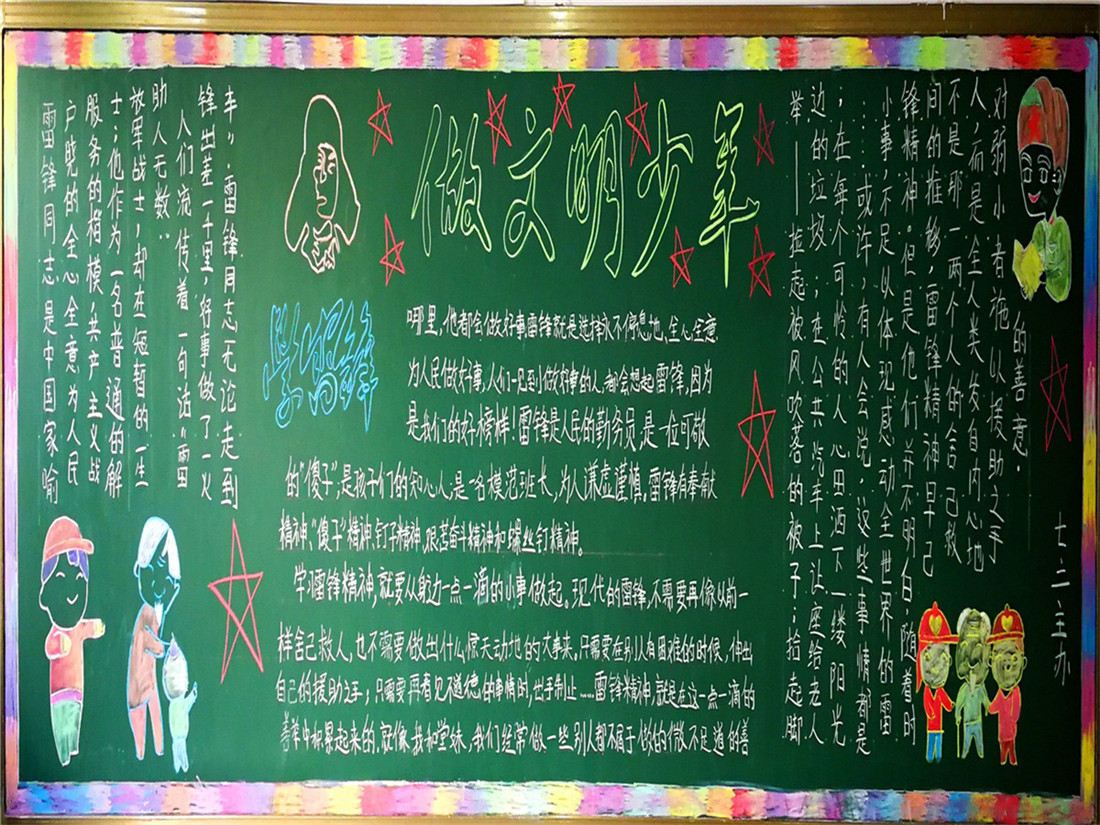 做文明少年
学雷锋
雷锋同志是中国家喻
户晓的全心全意为人民
服务的楷模，共产主义战
士；他作为一名普通的解
放军战士，却在短暂的一生
助人无数：
人们流传着一句话“雷
锋出差一千里，好事做了一火
车”．雷锋同志无论走到
哪里，他都会做好事雷锋就是选择永不停息地，全心全意
为人民做好事，人们一见到做好事的人，都会想起雷锋，因为
是我们的好榜样！雷锋是人民的勤务员，是一位可敬
的“傻子”，是孩子们的知心人，是一名模范班长，为人谦虚谨慎。雷锋有奉献
精神、“傻子”精神、钉子精神、艰苦奋斗精神和螺丝钉精神。
学习雷锋精神，就要从身边一点一滴的小事做起。现代的雷锋，不需要再像以前一
样舍己救人，也不需要做出什么惊天动地的大事来。只需要在别人有困难的时候，伸出
自己的援助之手，只需要再看见不道德的事情时，出手制止……雷锋精神，就是在这一点一滴的
善举中积累起来的，就像我和堂妹，我们经常做一些别人都不屑于做的微不足道的善
举——捡起被风吹落的被子；拾起脚
边的垃圾；在公共汽车上让座给老人
；在每个可怜的人心田洒下一缕阳光
……或许，有人会说，这些事情都是
小事，不足以体现感动全世界的雷
锋精神。但是他们并不明白，随着时
间的推移，雷锋精神早已
不是那一两个人的舍己救
人，而是全人类发自内心地
对弱小者施以援助之手
的善意．
七二主办